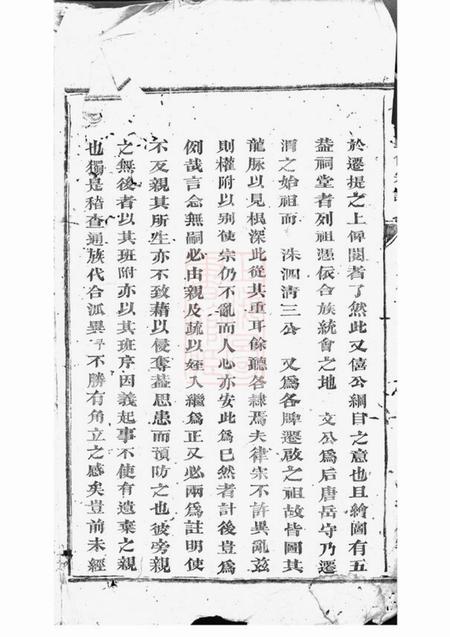 於遷提之上俾閱者了然此又僖公綱目之意也且繪圖有五
葢祠堂者列祖憑依合族統會之地　文公為后唐岳守乃遷
渭之始祖而　洙泗清三公　又為各脾遷啟之祖故皆圖其
龍脉以見根深此從其重耳餘聽各隸焉夫律宗不許異亂玆
則權附以别使宗仍不亂而人心亦安此為已然者計後豈為
例哉言念無嗣必由親及疏以姪入繼為正又必兩為註明使
不沒親其所生亦不致藉以侵奪葢思患而預防之也彼旁親
之無後者以其班附亦以其班序因義起事不使有遺棄之親
也獨是稽查通族代合派異予不勝有角立之感矣豈前未經